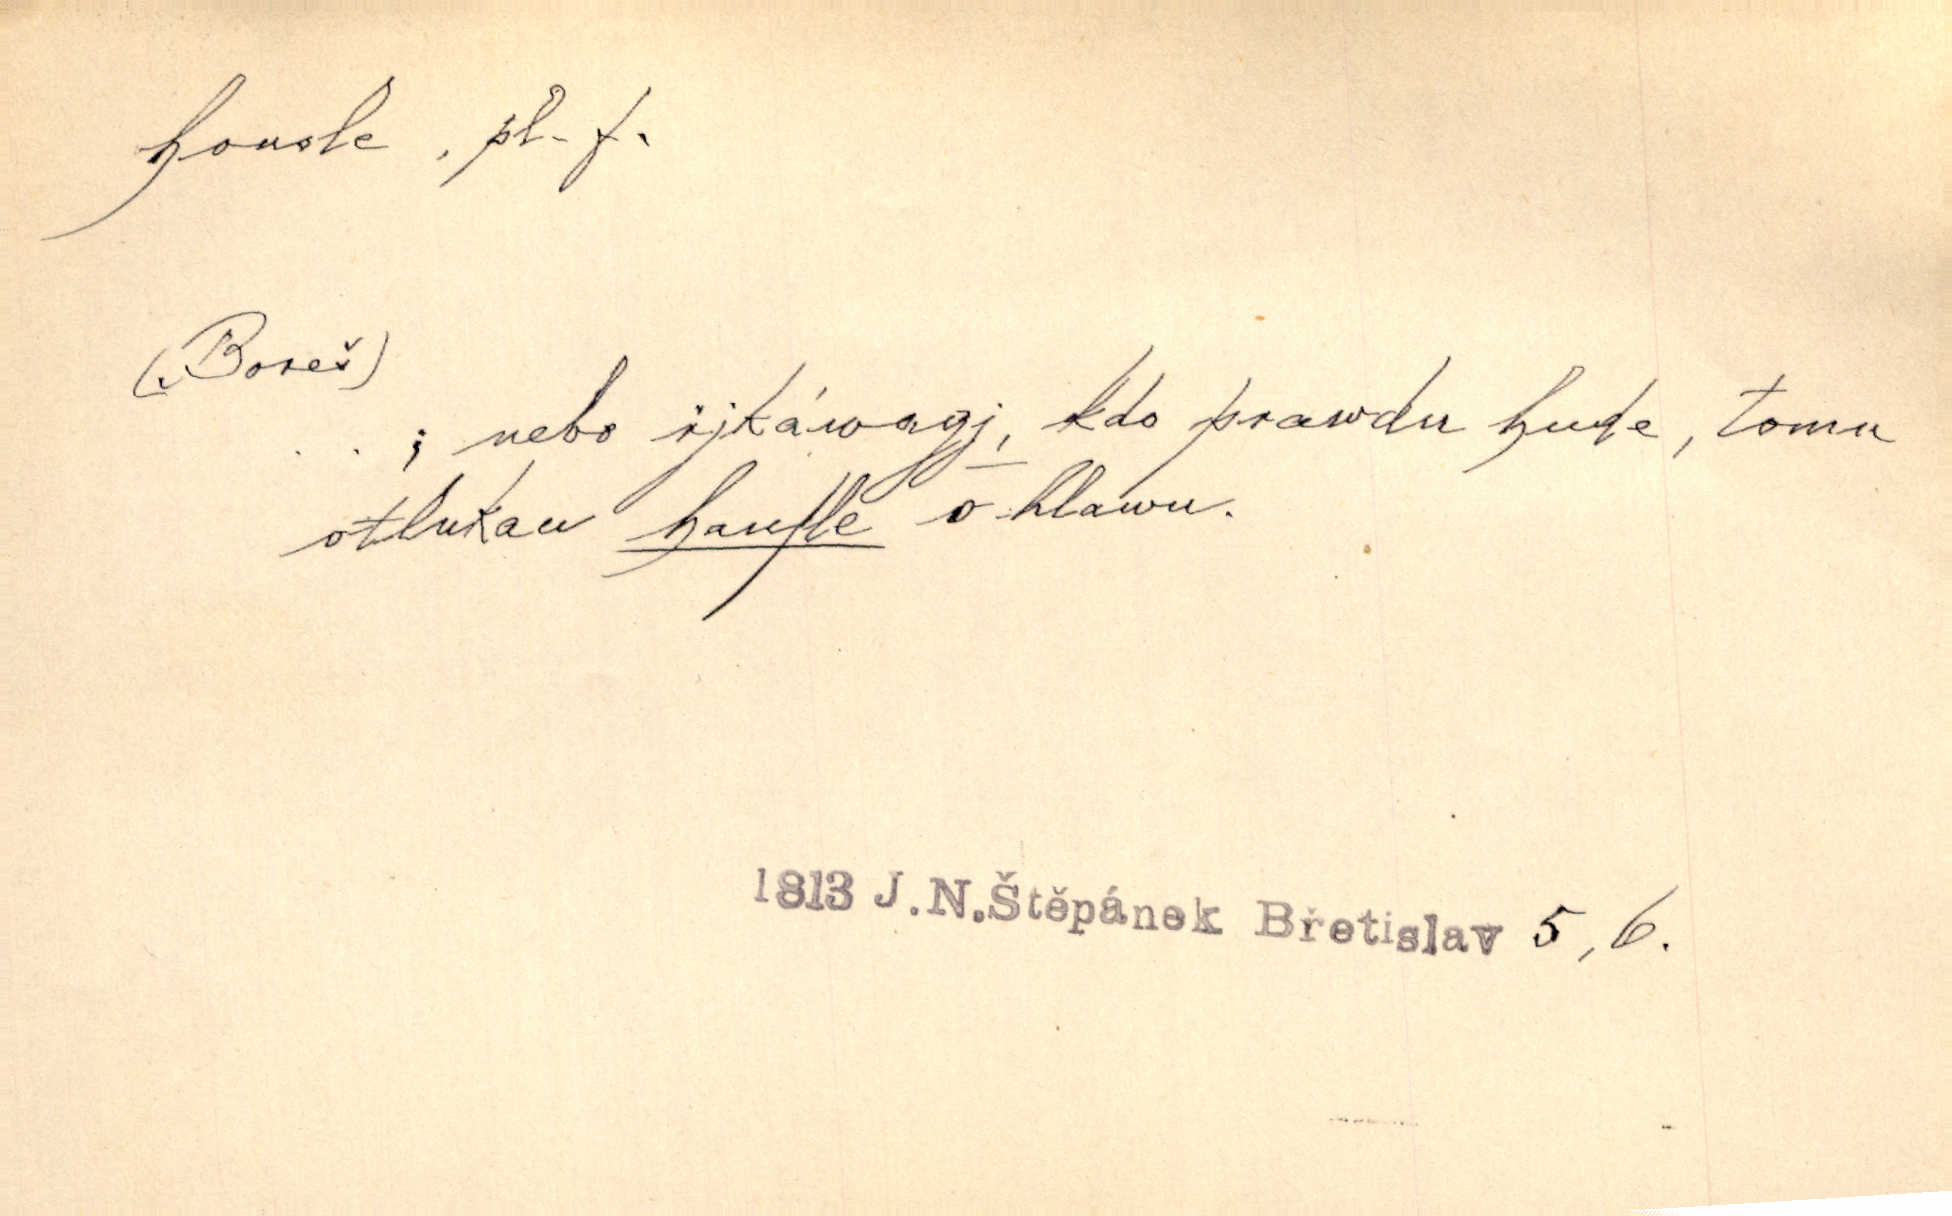 housle, pl. f.
(Boreš)
. . ; nebo řjkáwagj, kdo prawdu hude, tomu
otlukau hausle o hlawu.
1813 J.N.Štěpánek Břetislav 5, 6.